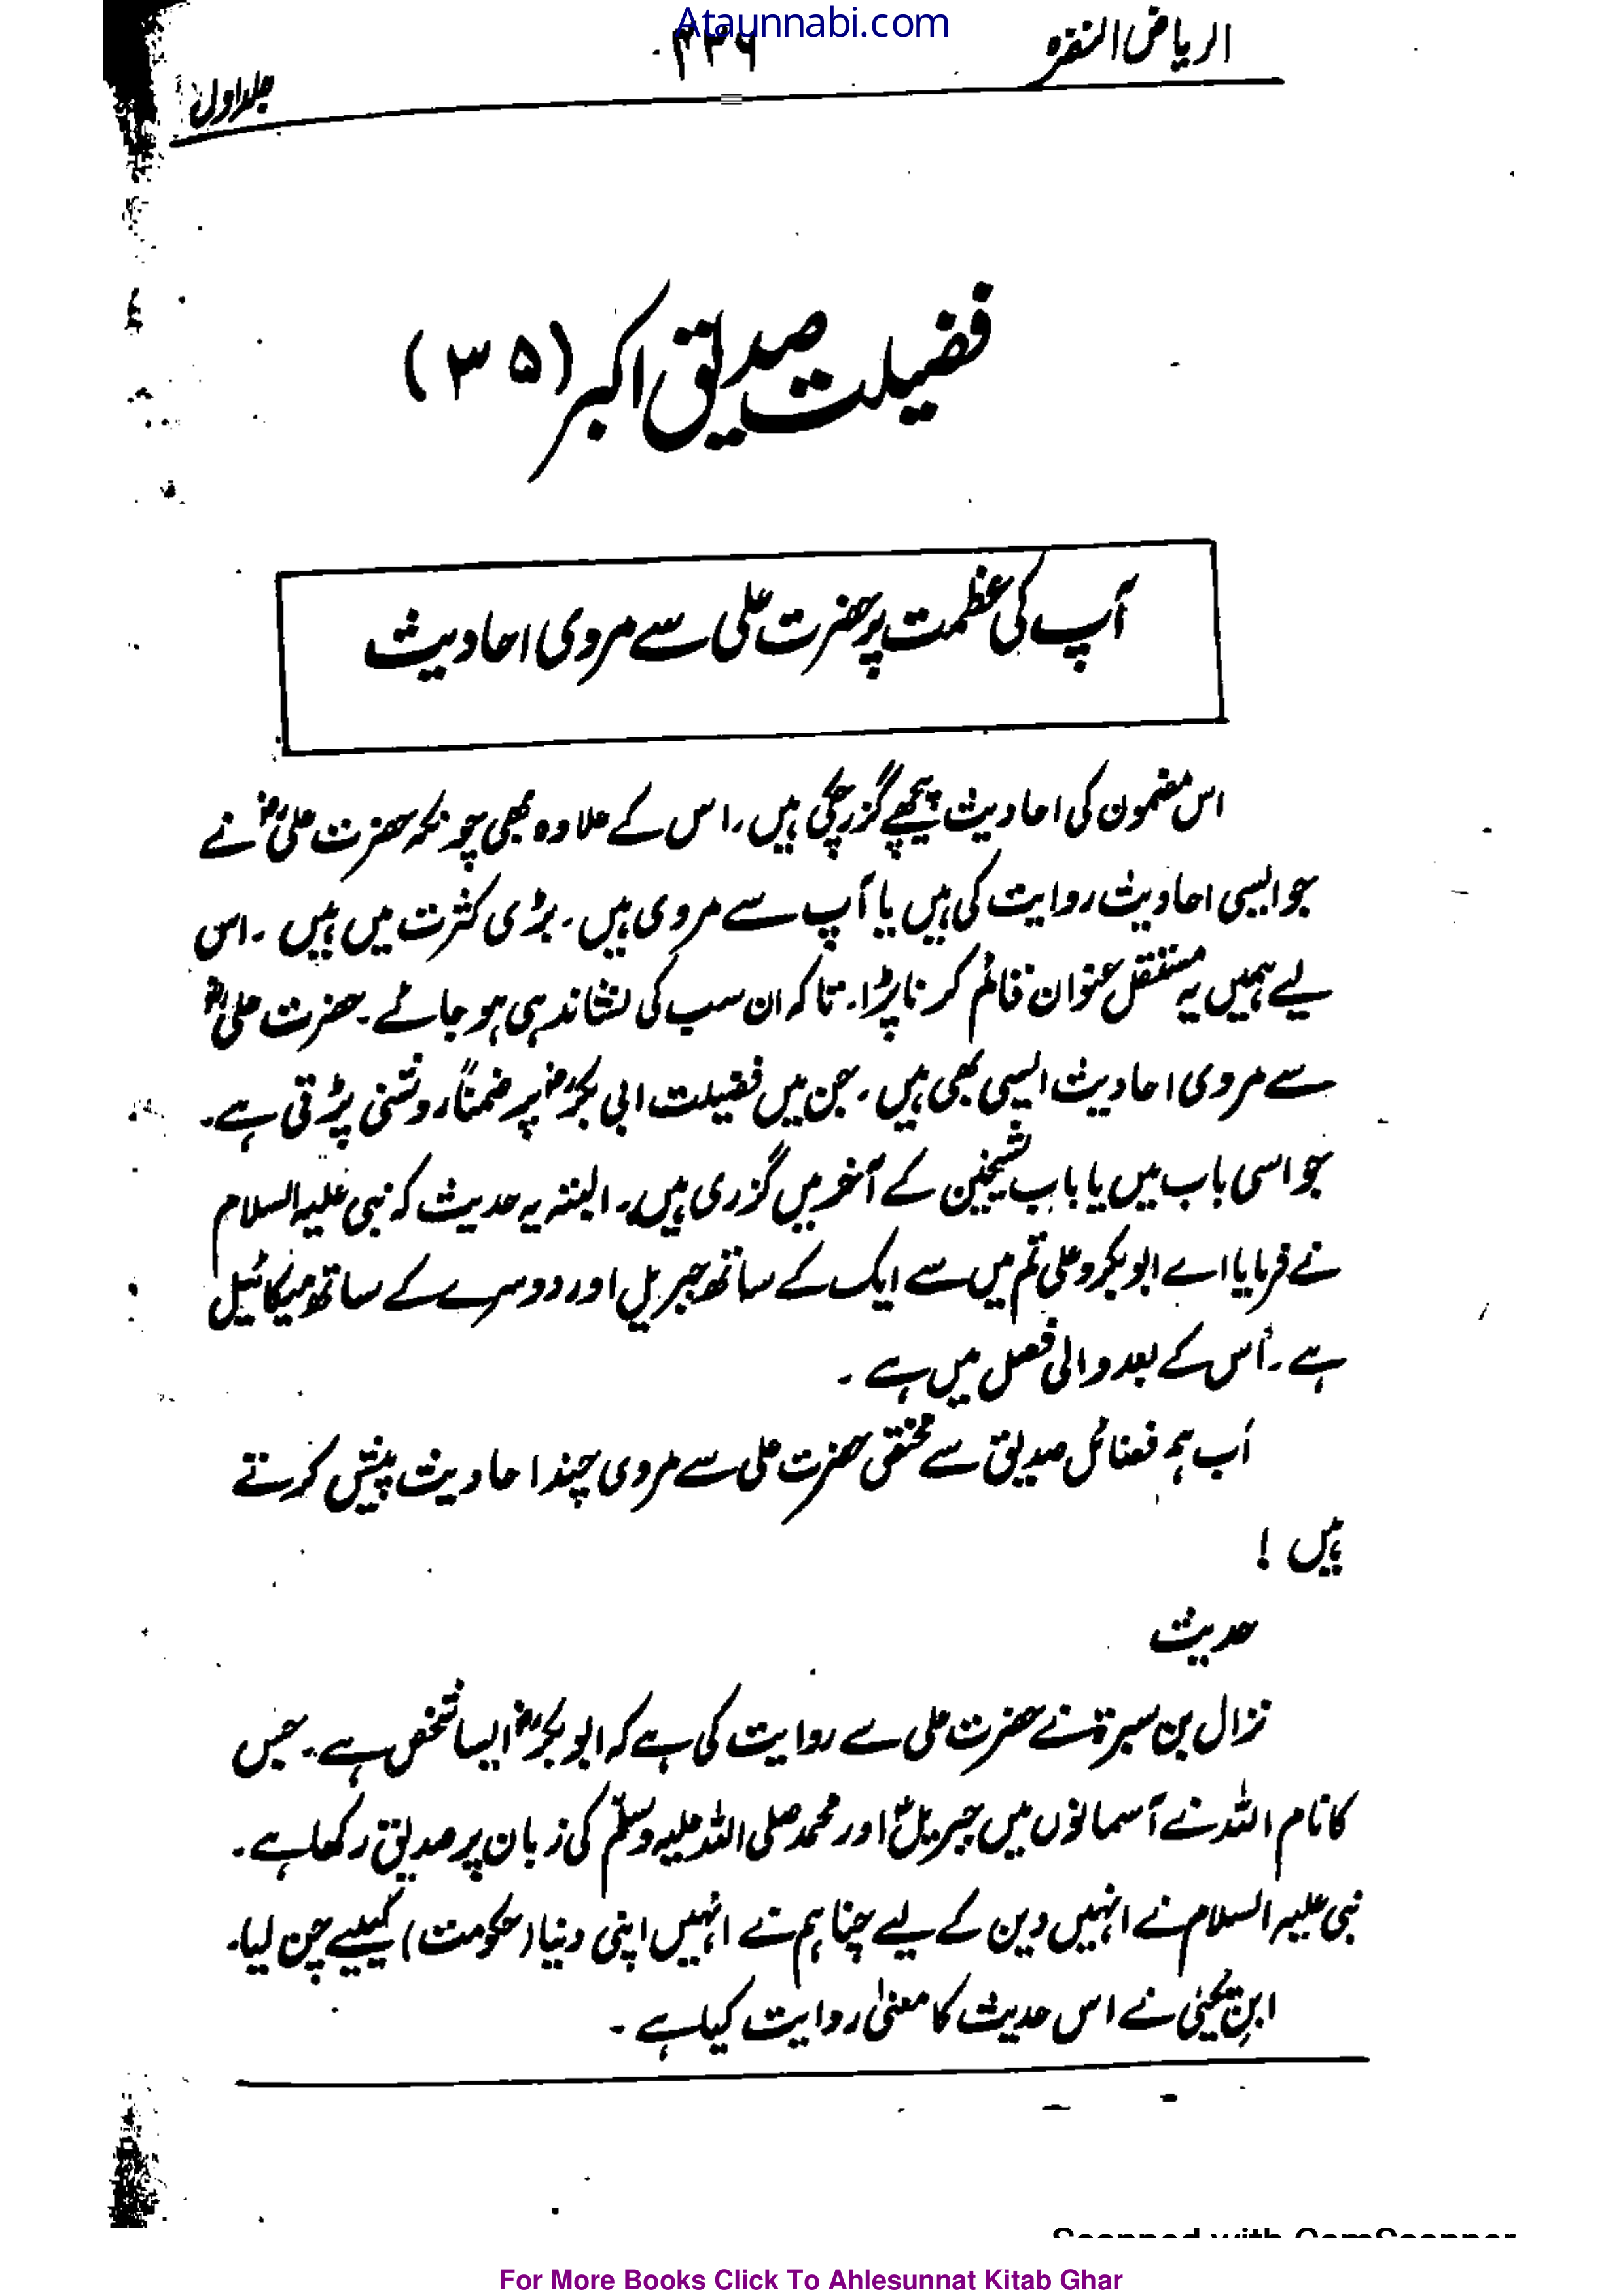 Ataunnabi.com
الریاض النضرہ
۴۳۶
جلد اول
فضیلت صدیق اکبر (۳۵)
آپ کی عظمت پر حضرت علی سے مروی احادیث
اس مضمون کی احادیث پیچھے گزر چکی ہیں۔ اس کے علاوہ بھی چونکہ حضرت علیؓ نے
جو ایسی احادیث روایت کی ہیں یا آپ سے مروی ہیں۔ بڑی کثرت میں ہیں۔ اس
لیے ہمیں یہ مستقل عنوان قائم کرنا پڑا۔ تاکہ ان سب کی نشاندہی ہو جائے۔ حضرت علیؓ
سے مروی احادیث ایسی بھی ہیں۔ جن میں فضیلت ابی بکرؓ پر ضمناً روشنی پڑتی ہے۔
جو اسی باب میں یا باب شیخین کے آخر میں گزری ہیں۔ البتہ یہ حدیث کہ نبی علیہ السلام
نے فرمایا اے ابوبکر و علی تم میں سے ایک کے ساتھ جبریل اور دوسرے کے ساتھ میکائیل
ہے۔ اُس کے بعد والی فصل میں ہے۔
اَب ہم فضائل صدیق سے مختص حضرت علی سے مروی چند احادیث پیش کرتے
ہیں !
حدیث
نزال بن سبرۃ نے حضرت علی سے روایت کی ہے کہ ابوبکرؓ ایسا شخص ہے۔ جس
کا نام اللہ نے آسمانوں میں جبریلؑ اور محمد صلی اللہ علیہ وسلم کی زبان پر صدیق رکھا ہے۔
نبی علیہ السلام نے انہیں دین کے لیے چنا ہم نے انہیں اپنی دنیا (حکومت) کیلیے چن لیا۔
ابنِ یحییٰ نے اس حدیث کا معنیٰ روایت کیا ہے۔
Scanned with CamScanner
For More Books Click To Ahlesunnat Kitab Ghar